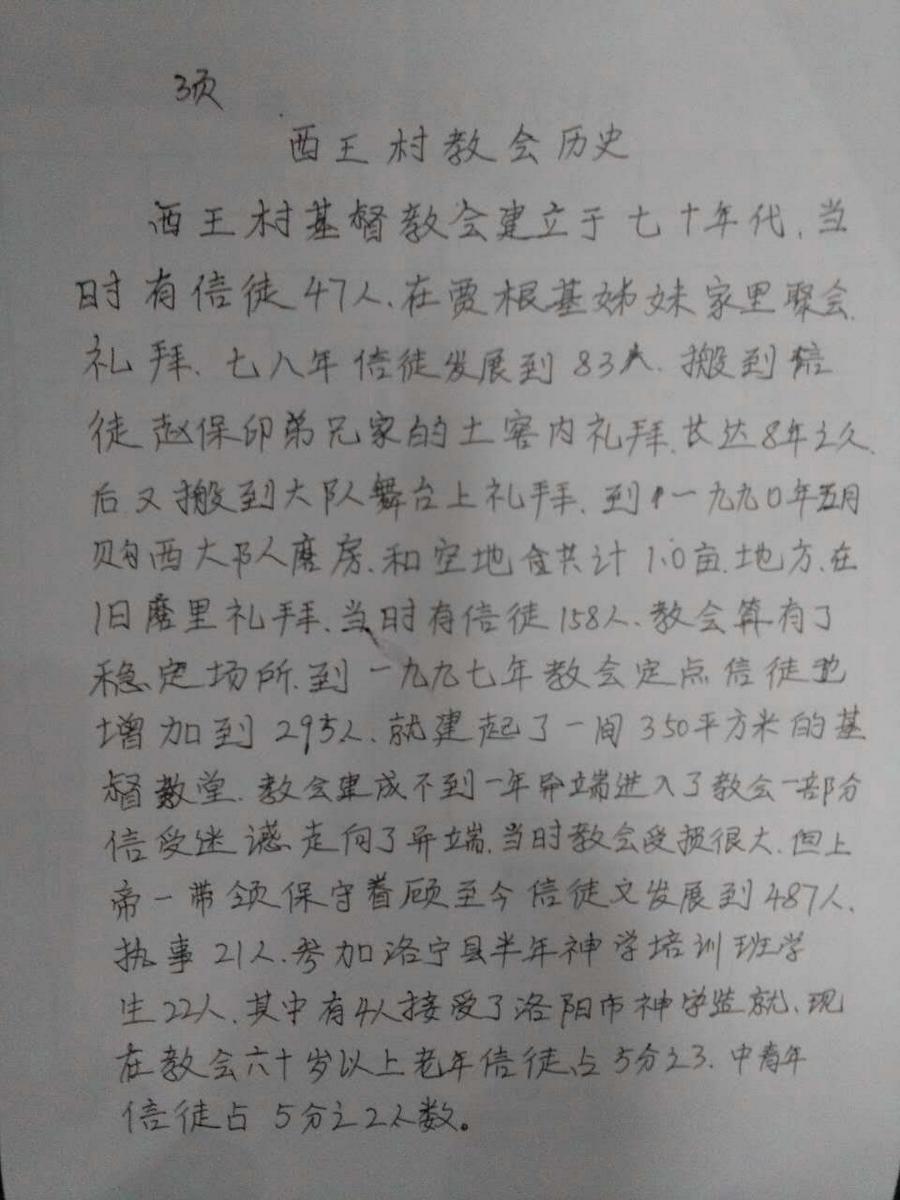 3页
西王村教会历史
西王村基督教会建立于七十年代,当
时有信徒47人,在贾根基姊妹家里聚会
礼拜、七八年信徒发展到83人.搬到信
徒赵保印弟兄家的土窑内礼拜.长达8年之久
后又搬到大队舞台上礼拜.到一九九〇年五月
购西大队磨房.和空地合共计1.0亩.地方.在
旧磨里礼拜.当时有信徒158人.教会算有了
稳定场所.到一九九七年教会定点信徒也
增加到295人.就建起了一间350平方米的基
督教堂.教会建成不到一年异端进入了教会一部分
信受迷惑走向了异端.当时教会受损很大.但上
帝一带领保守看顾至今信徒又发展到487人.
执事21人.参加洛宁县半年神学培训班学
生22人.其中有4人接受了洛阳市神学监就.现
在教会六十岁以上老年信徒占5分之3.中青年
信徒占5分之2人数。